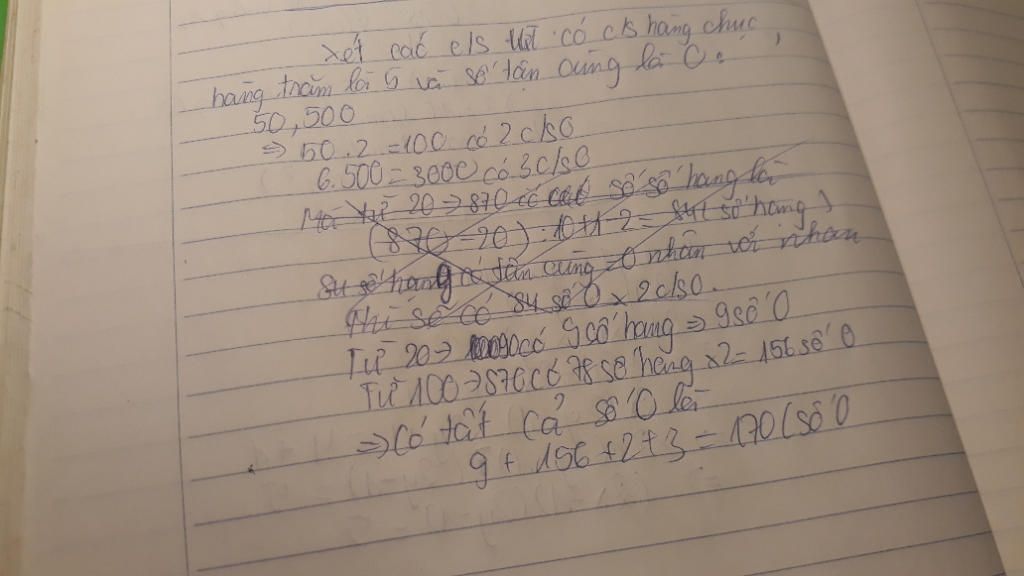 Xét các c/s có c/s hàng chục,
hàng trăm là 5 và số tận cùng là 0:
50,500
=> 50.2 =100 có 2 c/s0
6.500=3000 có 3c/s0
Mà từ 20 → 870 có số số hang là
(870-20):10+1-2= 84( số hang)
84 số hang có tân cùng =0 nhân với nhau
Thì sẽ có 84 số 0 x 2c/s0.
Từ 20 → 90 có 9 số hang => 9 số 0
Từ 100 → 870 có 78 số hang x2= 156 số 0
=> Có tất cả số 0 là
9 + 156 +2+3 = 170(số 0